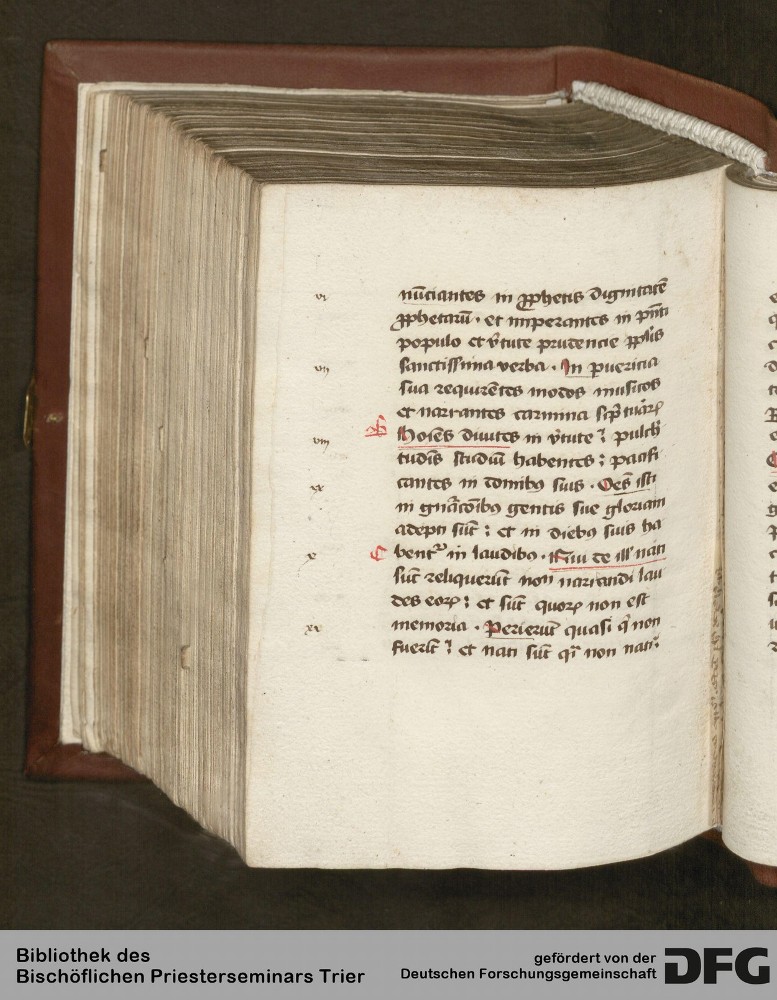 vi
nūciantes in ꝓphetis dignitatē
ꝓphetarū · et imperantes in pn̄ti
populo et v̾tute prudencie pplīs
vii
sanctissima verba · In puericia
sua requirētes modos musicos
et narrantes carmina sc̾ptuarꝝ
viii
Hoīes diuites in v̾tute : pulch
tudīs studiū habentes : pacifi
ix
cantes in domibꝯ suis · Oēs isti
in gn̄acōibꝯ gentis sue gloriam
adepti sūt : et in diebꝯ suis ha
x
bent² in laudibꝯ · Qui de ill' nati
sūt reliquerūt non narrandi lau
des eorꝝ : et sūt quorꝝ non est
xi
memoria · Perierūt quasi q̇ non
fuerīt : et nati sūt qͥ non nati :
Bibliothek des
Bischöflichen Priesterseminars Trier
gefördert von der
Deutschen Forschungsgemeinschaft
DFG